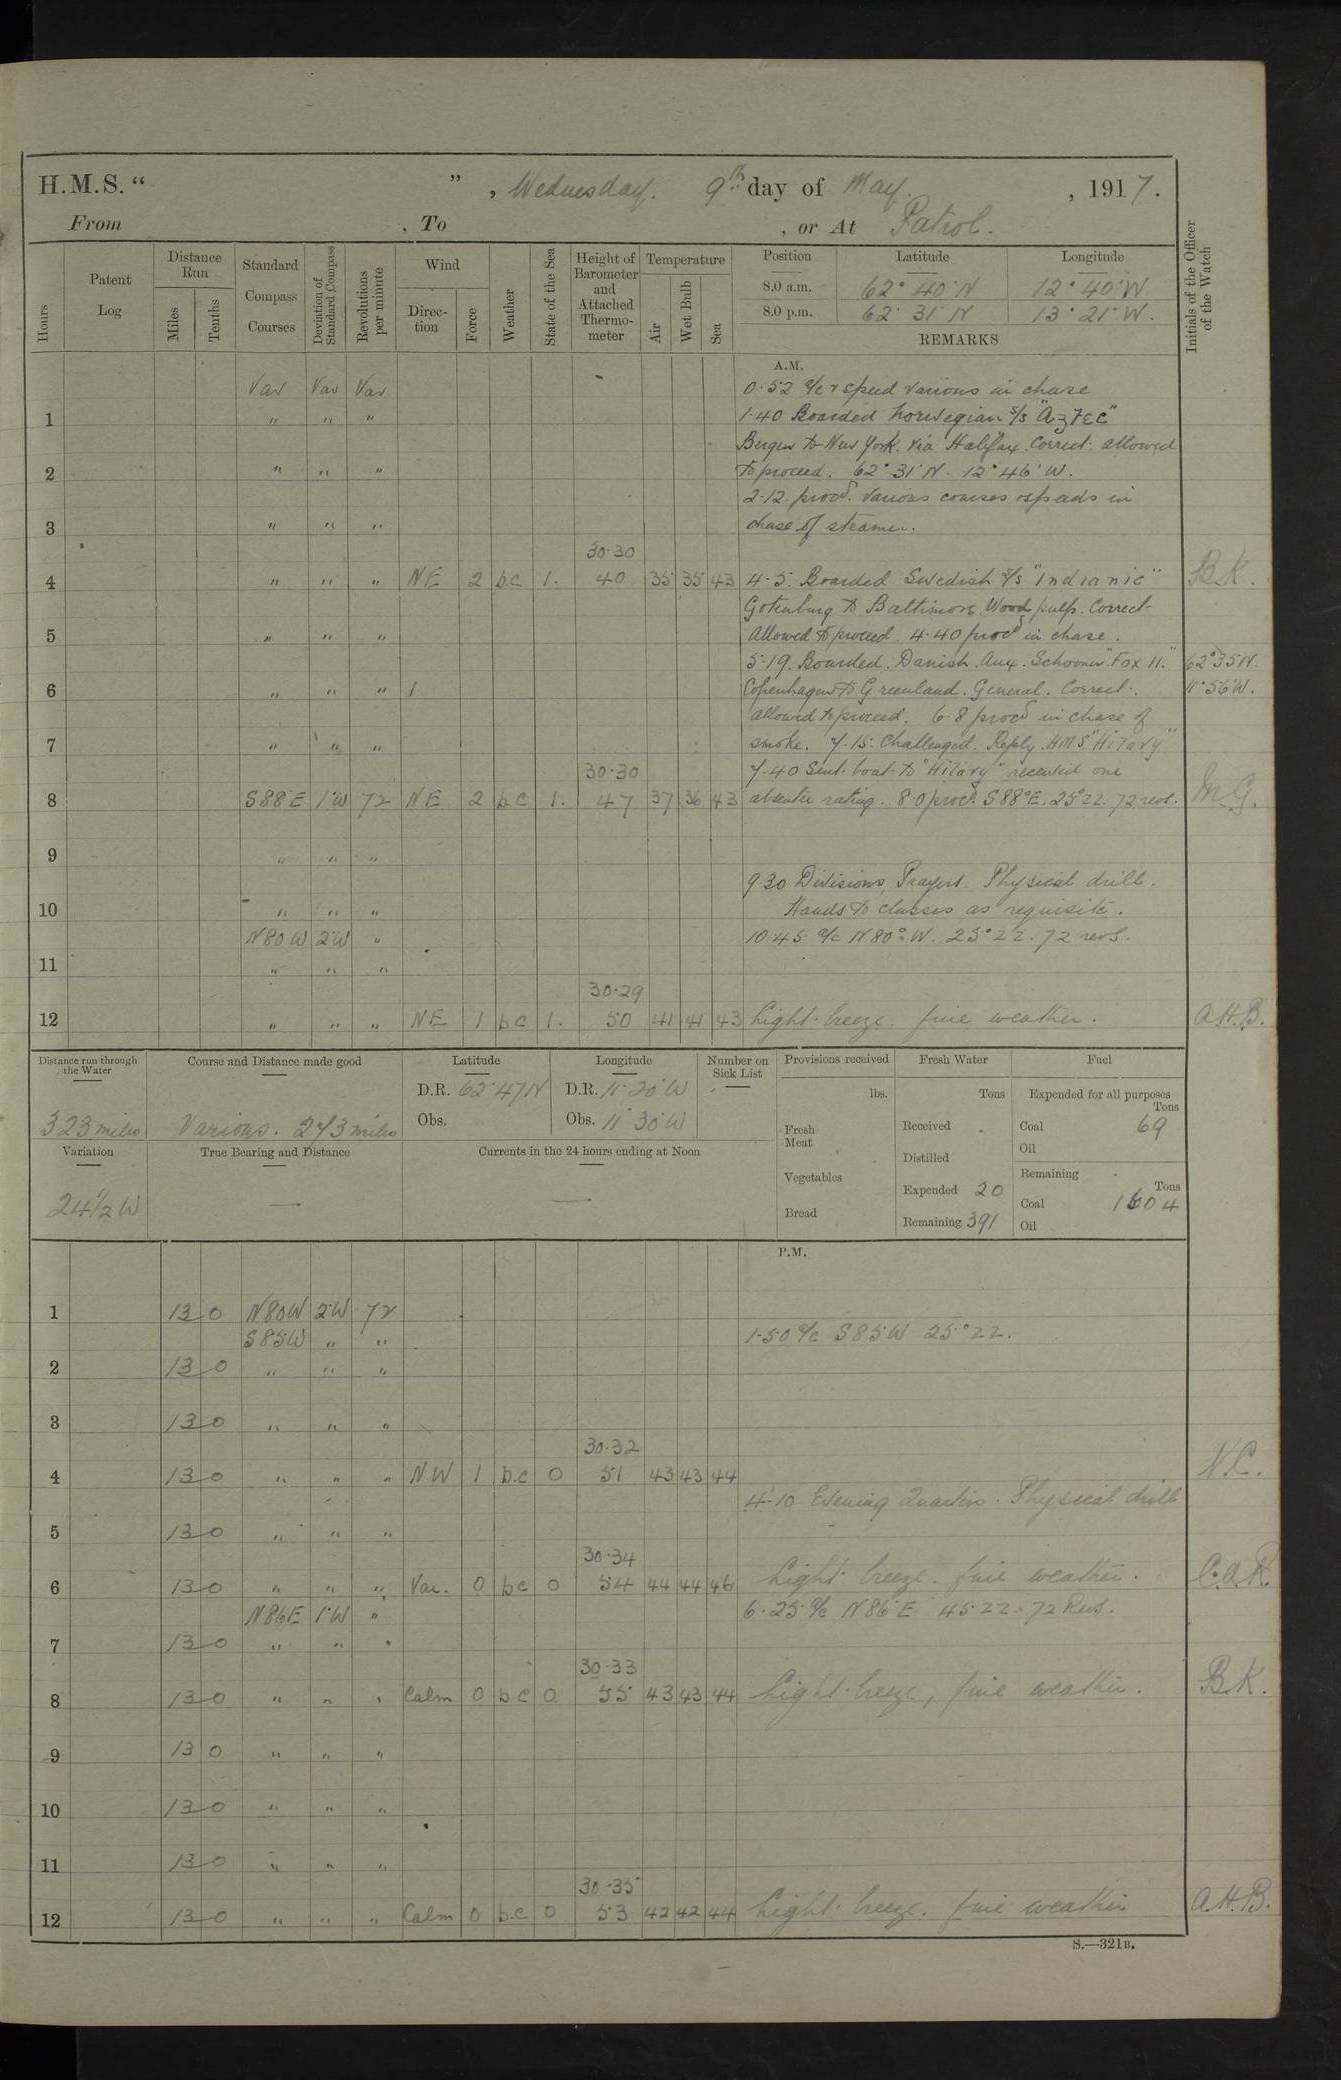 H.M.S. “ ” , Wednesday. 9th day of May. , 1917.
From , To , or At Patrol.
Hours
Patent Log
Distance Run
Miles
Tenths
Standard Compass Courses
Deviation of Standard Compass
Revolutions per minute
Wind
Direction
Force
Weather
State of the Sea
Height of Barometer and Attached Thermometer
Temperature
Air
Wet Bulb
Sea
Position Latitude Longitude
8.0 a.m. 62° 40' N 12° 40' W
8.0 p.m. 62° 31' N 13° 21' W.
REMARKS
Initials of the Officer of the Watch
A.M.
Var Var Var 0.52 a/c & speed various in chase
1 " " " 1.40 Boarded Norwegian S/S "Aztec"
Bergen to New York. via Halifax. Correct. allowed
2 " " " to proceed. 62° 31' N. 12° 46' W.
2.12. procd. various courses & speeds in
3 " " " chase of steamer.
30.30
4 " " " NE 2 b.c 1. 40 35 35 43 4.5. Boarded Swedish S/S "Indianic" B.K.
Gotenburg to Baltimore. Wood pulp. Correct.
5 " " " Allowed to proceed. 4.40 procd in chase.
5.19. Boarded. Danish. Aux. Schooner "Fox II." 62° 35 N.
6 " " " Copenhagen to Greenland. General. Correct. 11° 56' W.
allowed to proceed. 6.8 procd in chase of
7 " " " smoke. 7.15. Challenged. Reply. HMS "Hilary"
30.30 7.40 Sent boat to "Hilary" received one
8 S88°E 1°W 72 NE 2 b.c 1. 47 37 36 43 absentee rating. 8.0 procd. S88°E. 25°zz. 72 revs. M.G.
9 " " "
9.30 Divisions, Prayers. Physical drill.
10 " " " Hands to classes as requisite.
N80W 2°W " 10.45 a/c N80°W. 25°zz. 72 revs.
11 " " "
30.29
12 " " " NE 1 b c 1. 50 41 41 43 Light breeze. fine weather. A.H.B.
Distance run through the Water
323 miles
Course and Distance made good
Various. 273 miles
Latitude
D.R. 62° 47 N
Obs.
Longitude
D.R. 11° 20' W
Obs. 11° 30' W
Number on Sick List
Provisions received
lbs.
Fresh Meat
Vegetables
Bread
Fresh Water
Tons
Received
Distilled
Expended 20
Remaining 391
Fuel
Expended for all purposes
Tons
Coal 69
Oil
Remaining
Tons
Coal 1604
Oil
Variation
24½ W
True Bearing and Distance
Currents in the 24 hours ending at Noon
P.M.
1 13 0 N80W 2°W 72
S85W " " 1.50 a/c S85W 25°zz.
2 13 0 " " "
3 13 0 " " "
30.32
4 13 0 " " " NW 1 b.c 0 51 43 43 44 N.C.
4.10 Evening Quarters. Physical drill
5 13 0 " " "
30.34
6 13 0 " " " Var. 0 b c 0 54 44 44 46 Light breeze. fine weather. C.A.R.
N86E 1°W " 6.25 a/c N86°E 45°zz. 72 Revs.
7 13 0 " " "
30.33
8 13 0 " " " Calm 0 b c 0 55 43 43 44 Light breeze, fine weather. B.K.
9 13 0 " " "
10 13 0 " " "
11 13 0 " " "
30.35
12 13 0 " " " Calm 0 b.c 0 53 42 42 44 Light breeze. fine weather A.H.B.
S.—321B.